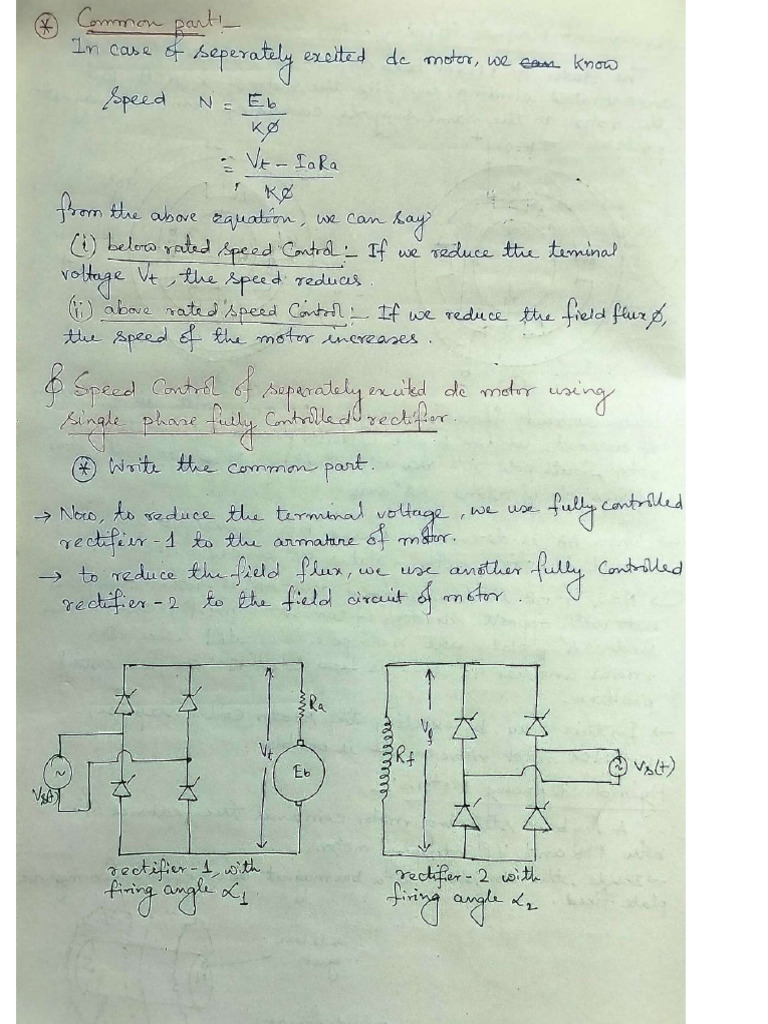 * Common part:-
In case of seperately excited dc motor, we can know
Speed N = Eb
Kø
= Vt - IaRa
Kø
from the above equation, we can say:
(i) below rated speed Control:- If we reduce the teminal
voltage Vt, the speed reduces.
(ii) above rated speed Control:- If we reduce the field flux ø,
the speed of the motor increases.
Speed Control of separately excited dc motor using
single phase fully Controlled rectifier.
* Write the common part.
→ Now, to reduce the terminal voltage, we use fully controlled
rectifier-1 to the armature of motor.
→ to reduce the field flux, we use another fully Controlled
rectifier-2 to the field circuit of motor.
Ra
Vt
Eb
~
Vs(t)
Vf
Rf
~
Vs(t)
rectifier-1, with
firing angle α1.
rectifier-2 with
firing angle α2